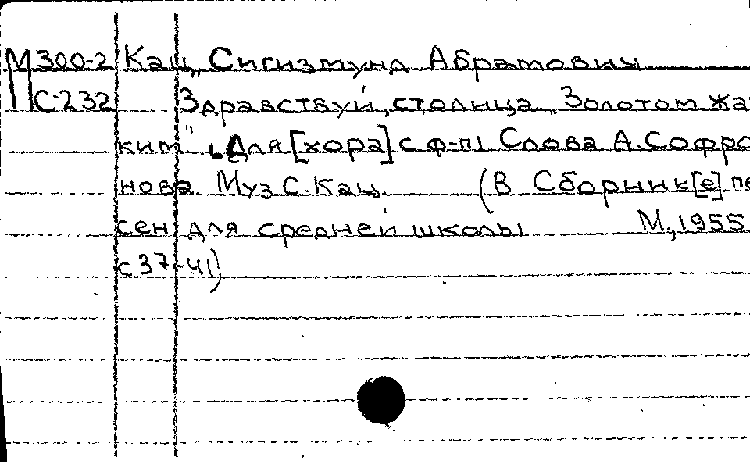 М 300-2 Кац, Сигизмунд Абрамович
С-232 Здравствуй, столица „Золотом жар
ким" Для [хора] с ф-п Слова А. Софро
нова. Муз С. Кац. (В Сборник[е] пе
сен для средней школы М., 1955
с 37-41)